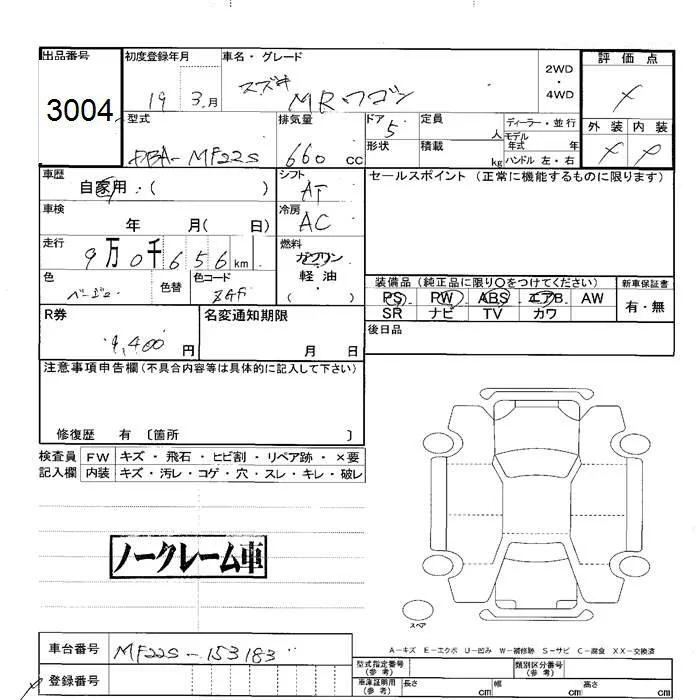 出品番号 初度登録年月 車名・グレード 2WD ・ 4WD 評価点
3004 19 3月 スズキ MRワゴン
型式 排気量 ドア 5 定員 人 ディーラー・並行 外装 内装
DBA-MF22S 660 cc 形状 積載 kg モデル年式 年 ハンドル 左・右
車歴 自家用・( ) シフト AT セールスポイント(正常に機能するものに限ります)
車検 年 月( 日) 冷房 AC
走行 9万0千656km 燃料 ガソリン
色 ベージュ 色替 色コード 軽油 ・ ( ) 装備品(純正品に限り〇をつけてください) 新車保証書
PS PW ABS エアB AW 有・無
R券 名変通知期限 SR ナビ TV カワ
,400円 月 日 後日品
注意事項申告欄(不具合内容等は具体的に記入して下さい)
修復歴 有 〔箇所 〕
検査員 FW キズ・飛石・ヒビ割・リペア跡・×要
記入欄 内装 キズ・汚レ・コゲ・穴・スレ・キレ・破レ
ノークレーム車
スペア
車台番号 MF22S-153183 A-キズ E-エクボ U-凹み W-補修跡 S-サビ C-腐食 XX-交換済
型式指定番号(参考) 類別区分番号(参考)
登録番号 車庫証明用(参考) 長さ cm 幅 cm 高さ cm